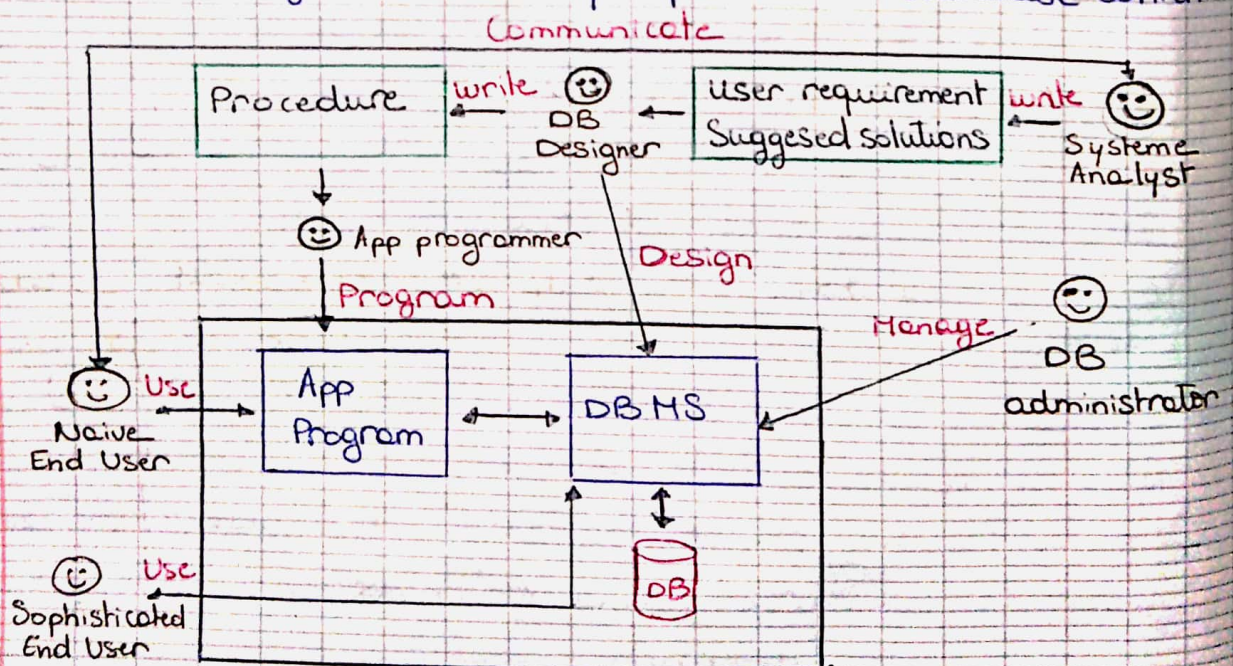 Communicate
Procedure
write
DB
Designer
user requirement
Suggesed solutions
write
Systeme
Analyst
App programmer
Design
Program
Manage
DB
administrator
Use
Naive
End User
App
Program
DBMS
DB
Use
Sophisticated
End User